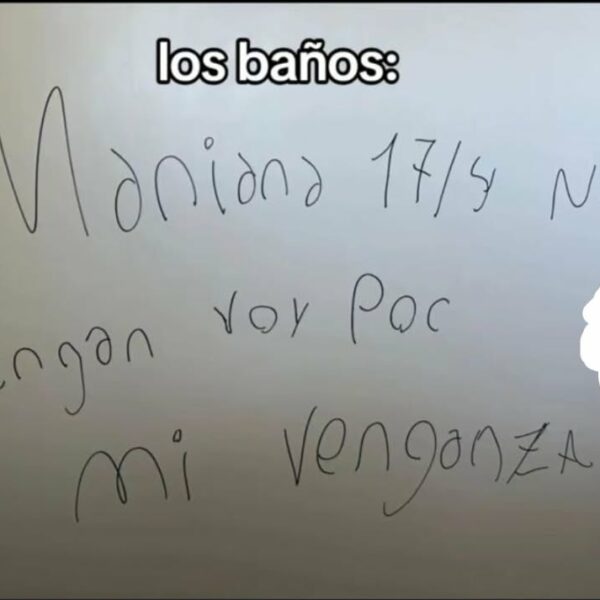 los baños:
Maniana 17/4 N
engan voy Por
mi venganza